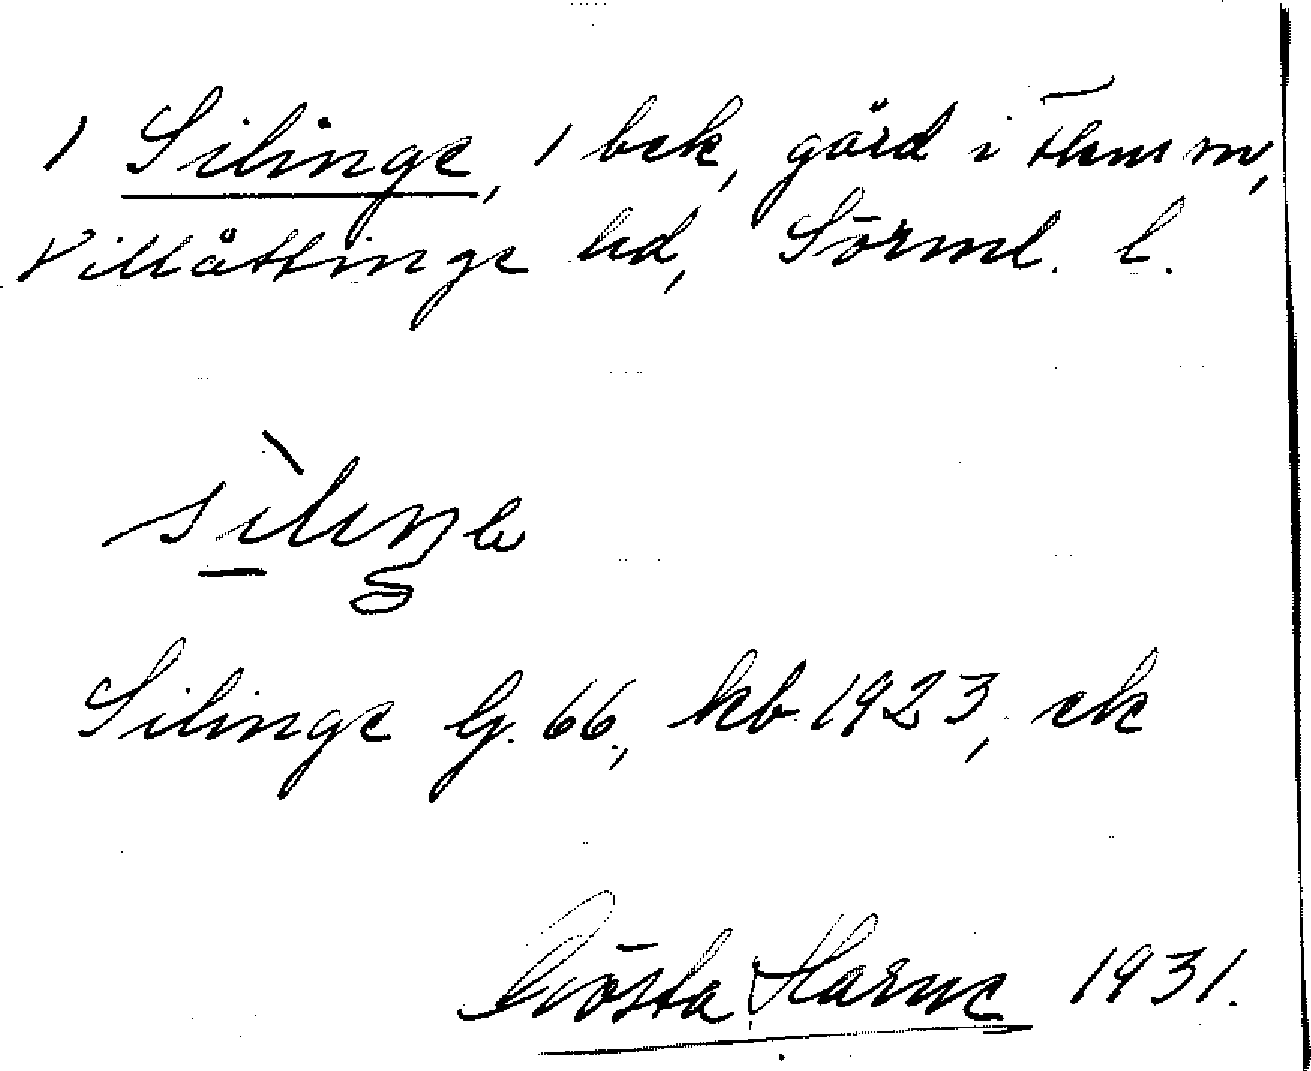 1 Silinge, 1 bek, gård i Flens sn,
Villåttinge hd, Sörml. l.
sìliŋə
Silinge G. 66, kb 1923, ek
Gösta Harne 1931.